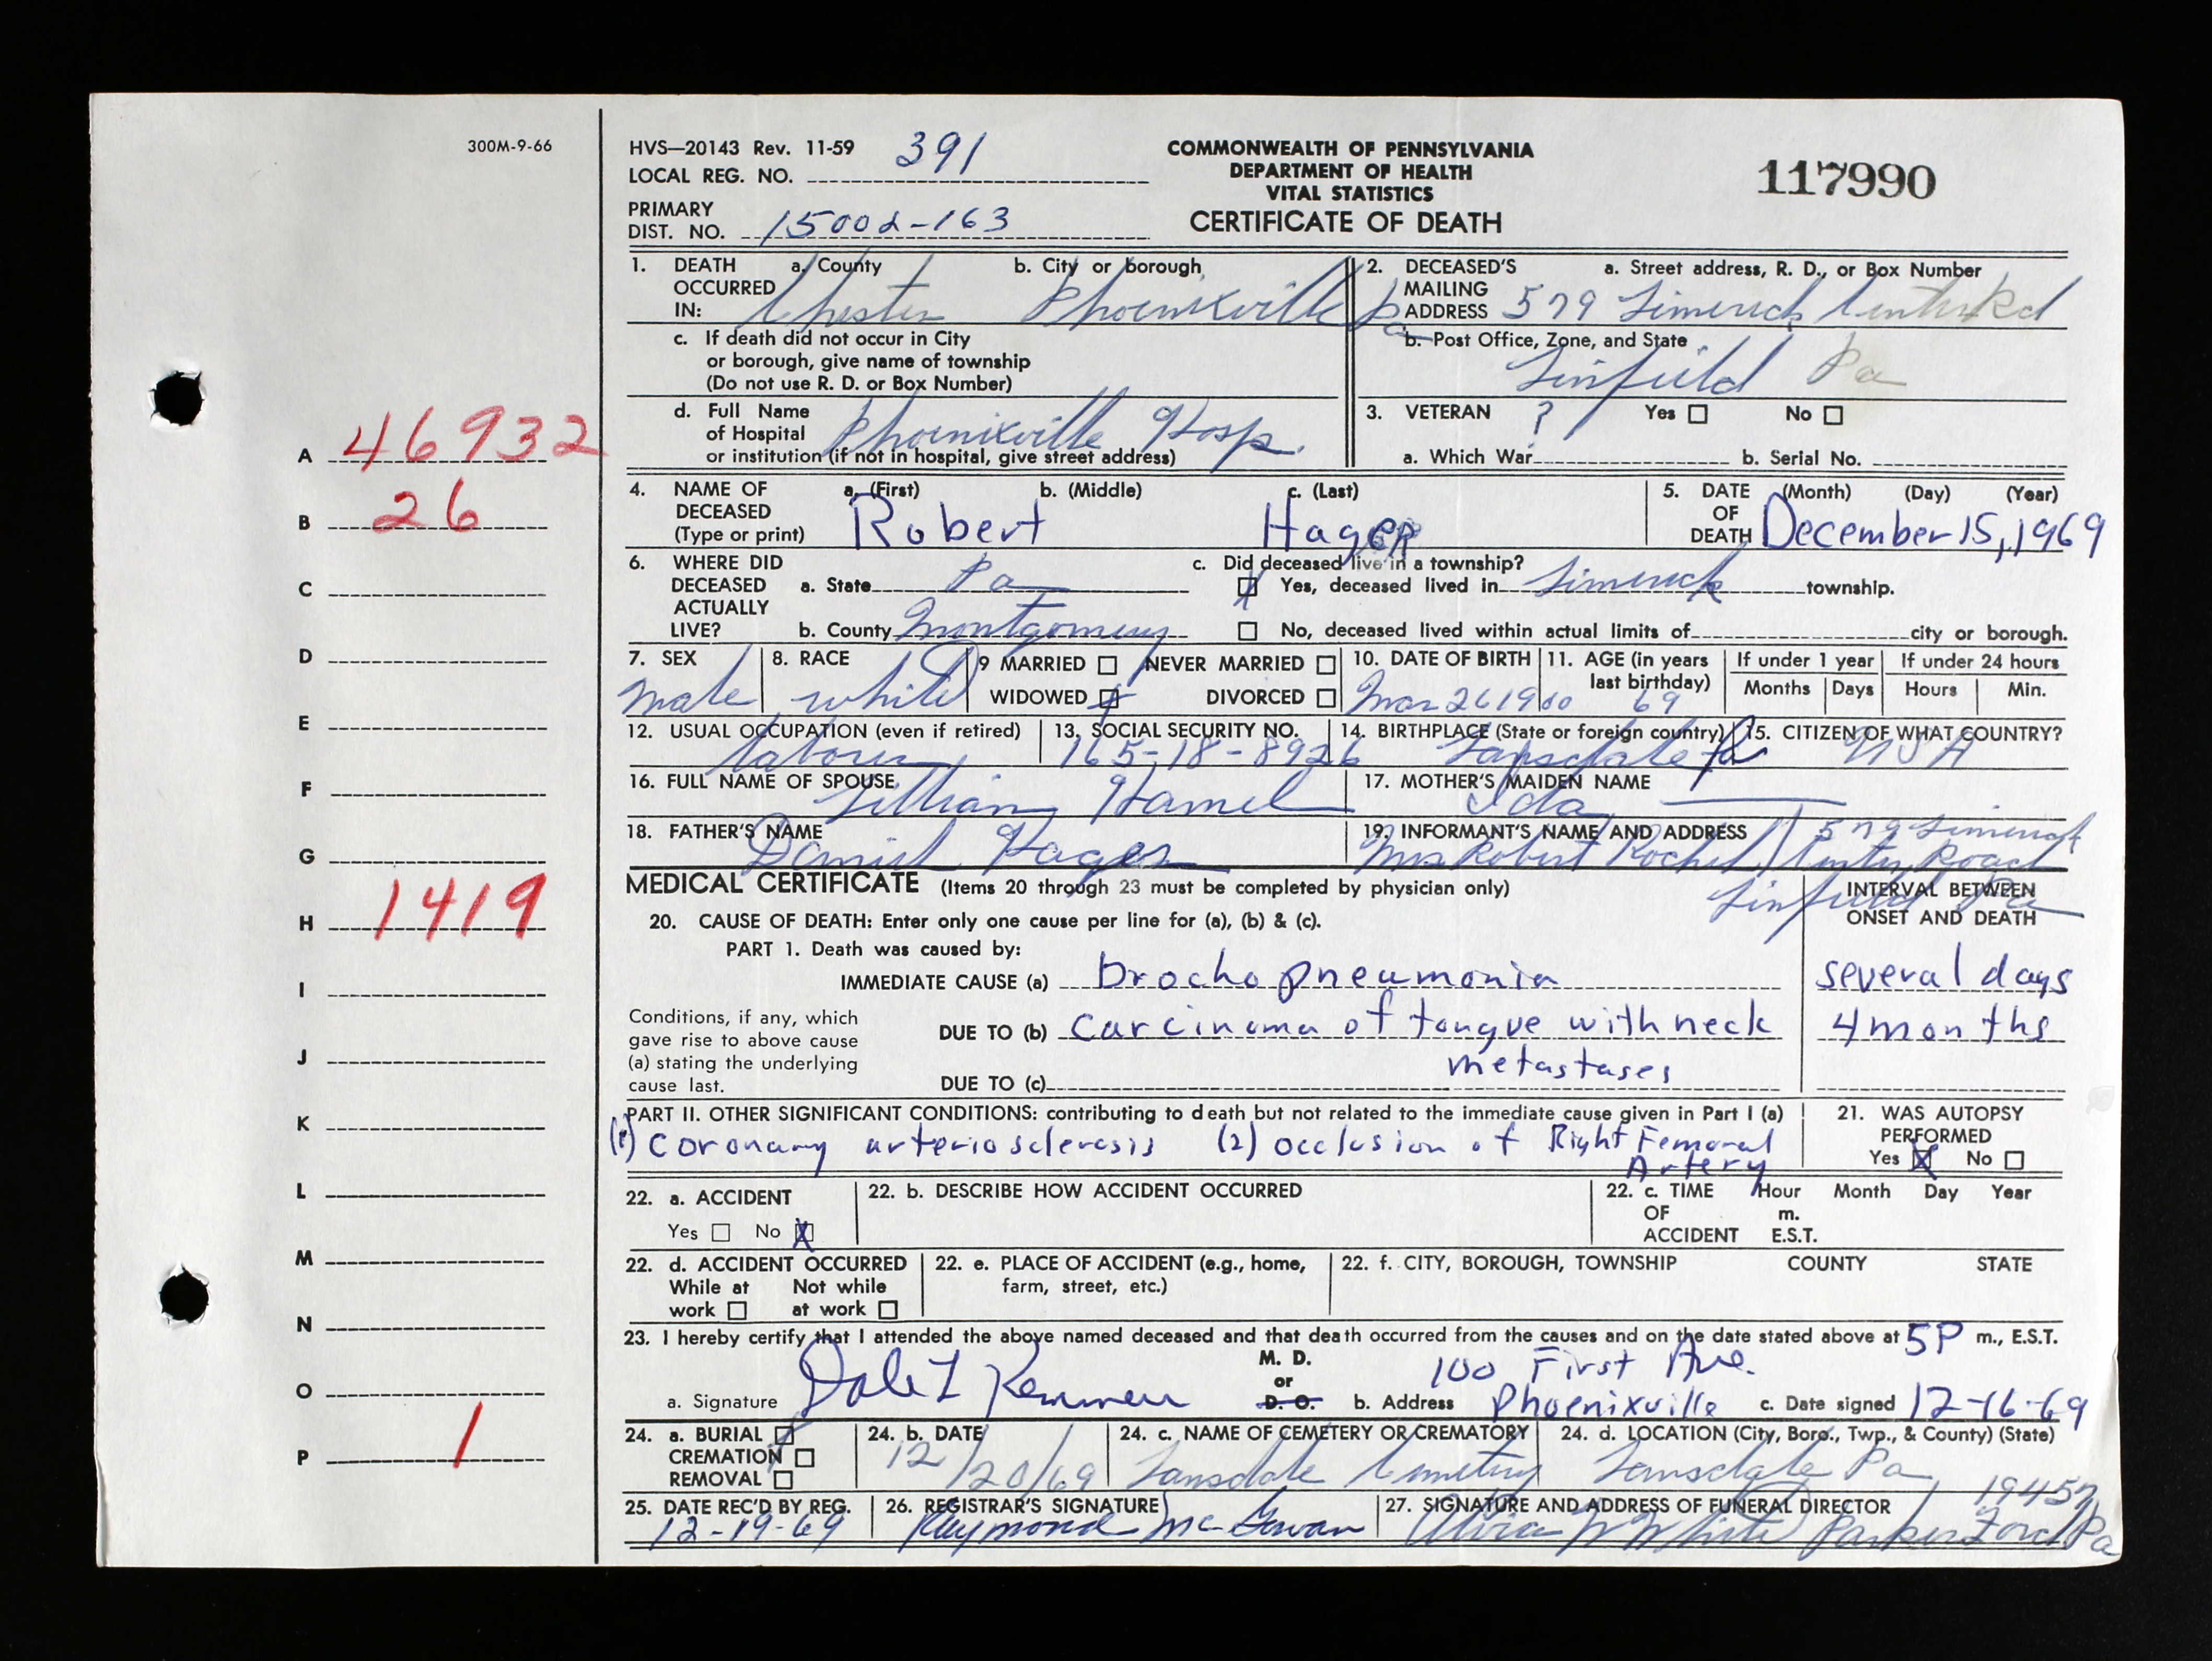 300M-9-66
HVS—20143 Rev. 11-59
LOCAL REG. NO. 391
PRIMARY
DIST. NO. 15002-163
COMMONWEALTH OF PENNSYLVANIA
DEPARTMENT OF HEALTH
VITAL STATISTICS
CERTIFICATE OF DEATH
117990
1. DEATH OCCURRED IN: a. County Chester b. City or borough Phoenixville Pa
c. If death did not occur in City
or borough, give name of township
(Do not use R. D. or Box Number)
d. Full Name
of Hospital Phoenixville Hosp.
or institution (if not in hospital, give street address)
2. DECEASED'S MAILING ADDRESS a. Street address, R. D., or Box Number
579 Limerick Center Rd
b. Post Office, Zone, and State
Linfield Pa
3. VETERAN ? Yes No
a. Which War b. Serial No.
4. NAME OF DECEASED (Type or print) a. (First) b. (Middle) c. (Last)
Robert Hager
5. DATE OF DEATH (Month) (Day) (Year)
December 15, 1969
6. WHERE DID DECEASED ACTUALLY LIVE?
a. State Pa
b. County Montgomery
c. Did deceased live in a township?
X Yes, deceased lived in Limerick township.
No, deceased lived within actual limits of city or borough.
7. SEX male
8. RACE white
9 MARRIED NEVER MARRIED
WIDOWED X DIVORCED
10. DATE OF BIRTH Mar 26 1900
11. AGE (in years last birthday) 69
If under 1 year Months Days
If under 24 hours Hours Min.
12. USUAL OCCUPATION (even if retired) laborer
13. SOCIAL SECURITY NO. 165-18-8926
14. BIRTHPLACE (State or foreign country) Lansdale Pa
15. CITIZEN OF WHAT COUNTRY? USA
16. FULL NAME OF SPOUSE Lillian Hamel
17. MOTHER'S MAIDEN NAME Ida
18. FATHER'S NAME Daniel Hager
19. INFORMANT'S NAME AND ADDRESS Mrs Robert Rochel 579 Limerick
Center Road
Linfield Pa
MEDICAL CERTIFICATE (Items 20 through 23 must be completed by physician only)
INTERVAL BETWEEN
ONSET AND DEATH
20. CAUSE OF DEATH: Enter only one cause per line for (a), (b) & (c).
PART 1. Death was caused by:
IMMEDIATE CAUSE (a) brochopneumonia several days
Conditions, if any, which
gave rise to above cause
(a) stating the underlying
cause last.
DUE TO (b) carcinoma of tongue with neck 4 months
metastases
DUE TO (c)
PART II. OTHER SIGNIFICANT CONDITIONS: contributing to death but not related to the immediate cause given in Part I (a)
(1) coronary arteriosclerosis (2) occlusion of Right Femoral
Artery
21. WAS AUTOPSY
PERFORMED
Yes X No
22. a. ACCIDENT
Yes No X
22. b. DESCRIBE HOW ACCIDENT OCCURRED
22. c. TIME OF ACCIDENT Hour Month Day Year
m.
E.S.T.
22. d. ACCIDENT OCCURRED
While at work Not while at work
22. e. PLACE OF ACCIDENT (e.g., home,
farm, street, etc.)
22. f. CITY, BOROUGH, TOWNSHIP COUNTY STATE
23. I hereby certify that I attended the above named deceased and that death occurred from the causes and on the date stated above at 5P m., E.S.T.
a. Signature
M. D.
or
D. O.
b. Address 100 First Ave.
Phoenixville
c. Date signed 12-16-69
24. a. BURIAL X
CREMATION
REMOVAL
24. b. DATE 12/20/69
24. c. NAME OF CEMETERY OR CREMATORY Lansdale Cemetery
24. d. LOCATION (City, Boro., Twp., & County) (State) Lansdale Pa
19457
25. DATE REC'D BY REG. 12-19-69
26. REGISTRAR'S SIGNATURE Raymond McGowan
27. SIGNATURE AND ADDRESS OF FUNERAL DIRECTOR White Parker Ford Pa
A 46932
B 26
C
D
E
F
G
H 1419
I
J
K
L
M
N
O
P 1